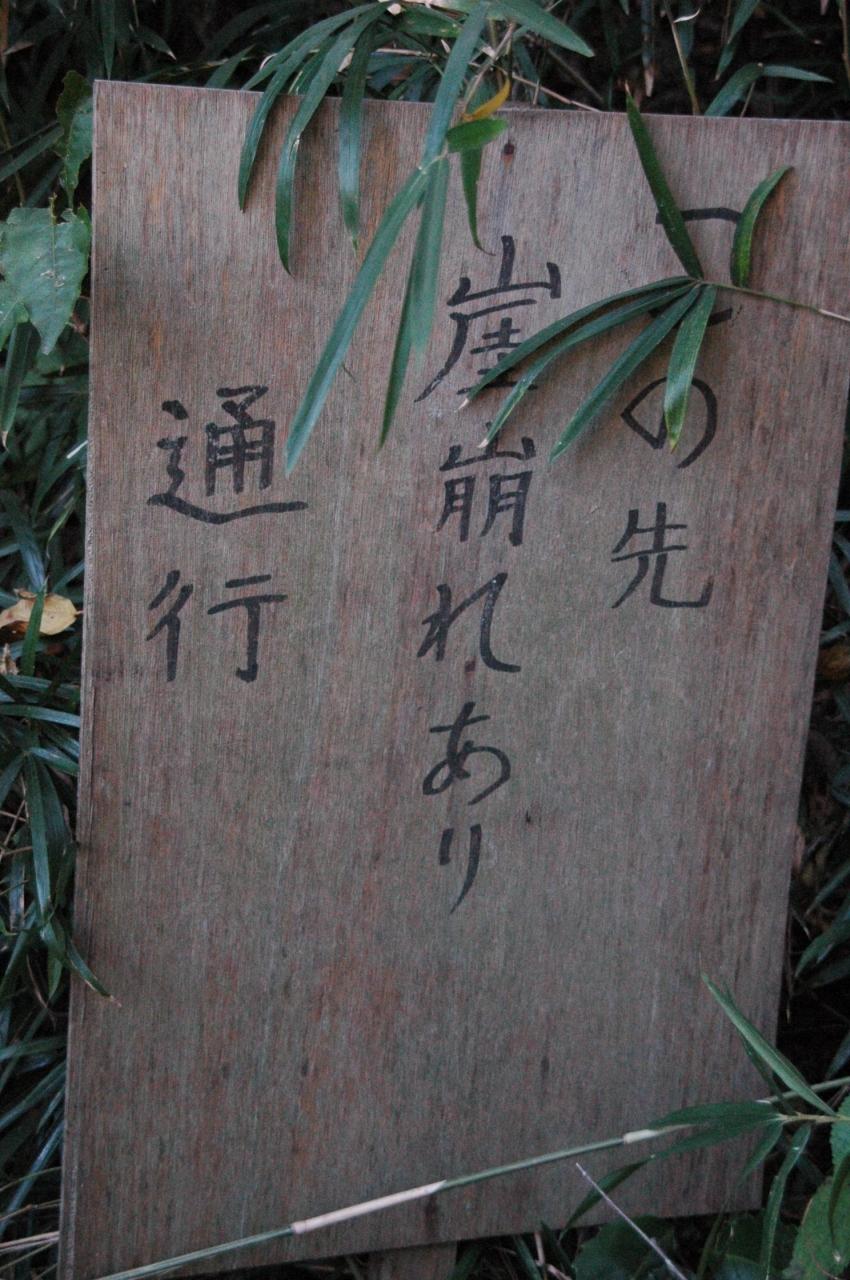 この先
崖崩れあり
通行